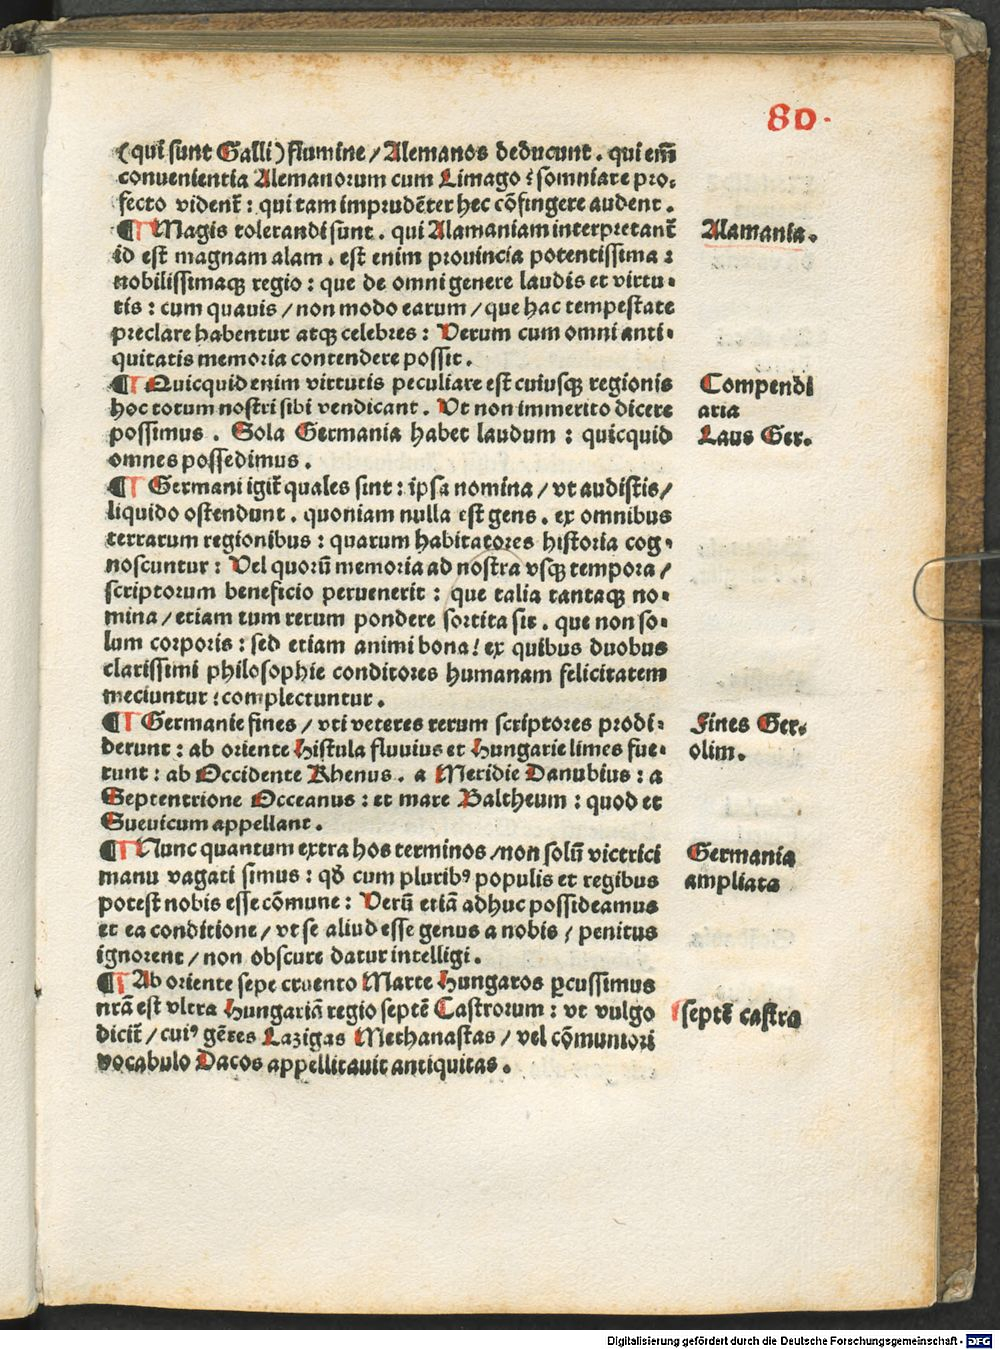 80.
(qui sunt Galli) flumine / Alemanos deducunt . qui em̄
conuenientia Alemanorum cum Limago : somniare pro-
fecto vident̄ : qui tam imprudēter hec cōfingere audent .
¶ Magis tolerandi sunt . qui Alamaniam interpretant̄
Alamania .
id est magnam alam . est enim prouincia potentissima :
nobilissimaqꝫ regio : que de omni genere laudis et virtu-
tis : cum quauis / non modo earum / que hac tempestate
preclare habentur atqꝫ celebres : Verum cum omni anti-
quitatis memoria contendere possit .
¶ Quicquid enim virtutis peculiare est cuiusqꝫ regionis
Compendi
hoc totum nostri sibi vendicant . Vt non immerito dicere
aria
possimus . Sola Germania habet laudum : quicquid
Laus Ger.
omnes possedimus .
¶ Germani igit̄ quales sint : ipsa nomina / vt audistis /
liquido ostendunt . quoniam nulla est gens . ex omnibus
terrarum regionibus : quarum habitatores historia cog-
noscuntur : Vel quorū memoria ad nostra vsqꝫ tempora /
scriptorum beneficio peruenerit : que talia tantaqꝫ no-
mina / etiam tum rerum pondere sortita sit . que non so-
lum corporis : sed etiam animi bona / ex quibus duobus
clarissimi philosophie conditores humanam felicitatem
meciuntur : complectuntur .
¶ Germanie fines / vti veteres rerum scriptores prodi-
Fines Ger.
derunt : ab oriente Histula fluuius et Hungarie limes fue-
olim .
runt : ab Occidente Rhenus . a Meridie Danubius : a
Septentrione Occeanus : et mare Baltheum : quod et
Sueuicum appellant .
¶ Nunc quantum extra hos terminos / non solū victrici
Germania
manu vagati simus : qđ cum pluribꝰ populis et regibus
ampliata
potest nobis esse cōmune : Verū etiā adhuc possideamus
et ea conditione / vt se aliud esse genus a nobis / penitus
ignorent / non obscure datur intelligi .
¶ Ab oriente sepe cruento Marte Hungaros ꝑcussimus
nrā est vltra Hungariā regio septē Castrorum : vt vulgo
septē castra
dicit̄ / cuiꝰ gētes Lazigas Methanastas / vel cōmuniori
vocabulo Dacos appellitauit antiquitas .
Digitalisierung gefördert durch die Deutsche Forschungsgemeinschaft - DFG